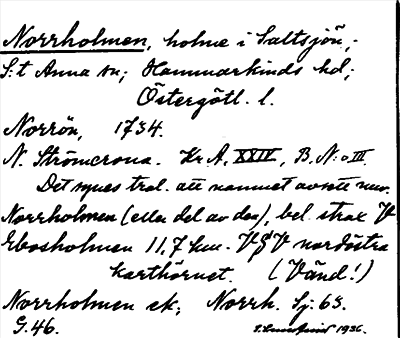 Norrholmen, holme i Saltsjön,
S:t Anna sn; Hammarkinds hd;
Östergötl. l.
Norrön, 1734.
N. Strömcrona. Kr. A, XXIV, B. N:o III
Det synes trol. att namnet avsett nuv.
Norrholmen (eller del av den), bel. strax V
Ebosholmen 11,7 km. V g V nordöstra
karthörnet. (Vänd!)
Norrholmen ek; Norrh. Sj. 63.
G. 46. 1936.